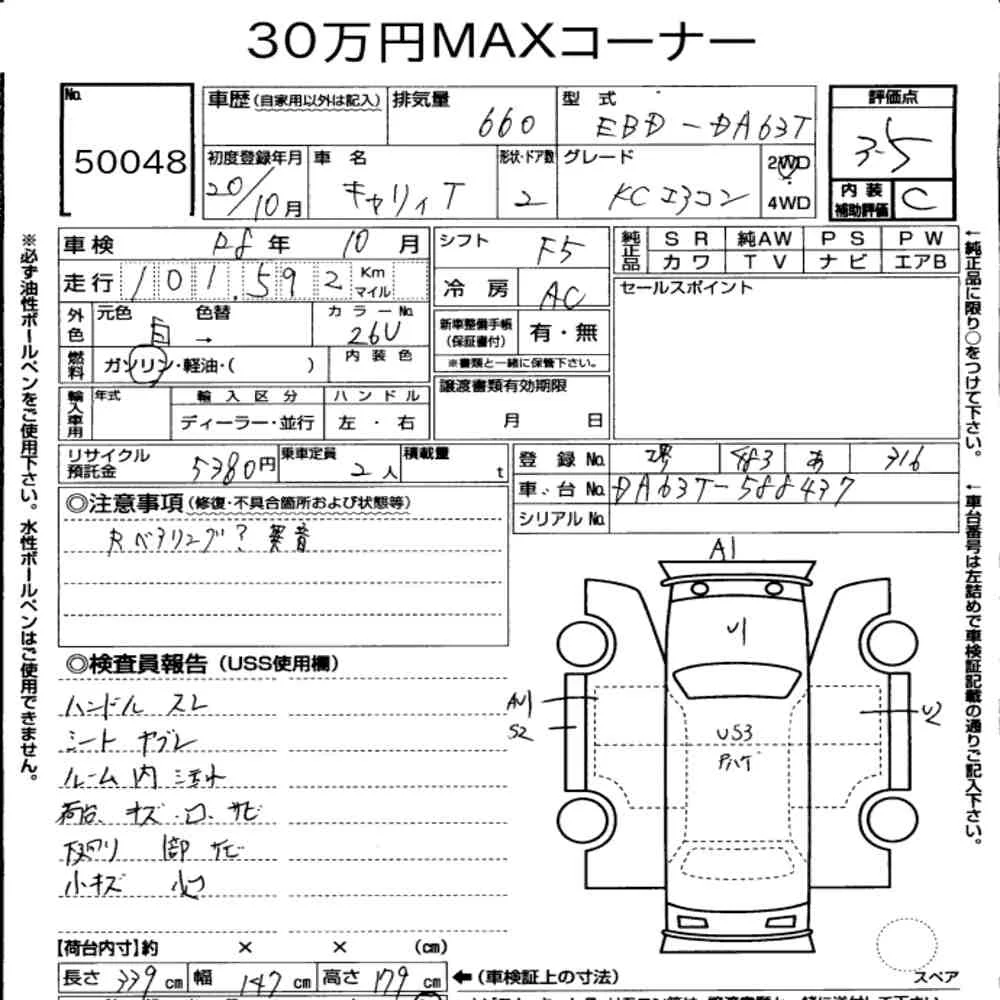 30万円MAXコーナー
No. 50048
車歴(自家用以外は記入)
排気量 660
型式 EBD-DA63T
評価点 3.5
初度登録年月 20/10月
車名 キャリィT
形状・ドア数 2
グレード KCエアコン
2WD
4WD
内装補助評価 C
車検 R8年 10月
シフト F5
純正品 SR 純AW PS PW
カワ TV ナビ エアB
走行 101,592 Km マイル
冷房 AC
セールスポイント
外色 元色 白 → 色替 カラーNo. 26U
新車整備手帳(保証書付) 有・無
※書類と一緒に保管下さい。
燃料 ガソリン・軽油・( ) 内装色
譲渡書類有効期限
月 日
輸入車用 年式 輸入区分 ハンドル
ディーラー・並行 左・右
リサイクル預託金 5380円 乗車定員 2人 積載量 t
登録No. 堺 483 あ 316
車台No. DA63T-588437
シリアルNo.
◎注意事項(修復・不具合箇所および状態等)
Rベアリング? 異音
◎検査員報告(USS使用欄)
ハンドル スレ
シート ヤブレ
ルーム内
荷台 キズ・凹・サビ
下廻り 部 サビ
小キズ 小凹
A1
U1
AU1
S2
US3
Pハゲ
U2
スペア
【荷台内寸】約 × × (cm)
長さ 339 cm 幅 147 cm 高さ 179 cm ←(車検証上の寸法)
※必ず油性ボールペンをご使用下さい。水性ボールペンはご使用できません。
←純正品に限り○をつけて下さい。
←車台番号は左詰めで車検証記載の通りご記入下さい。